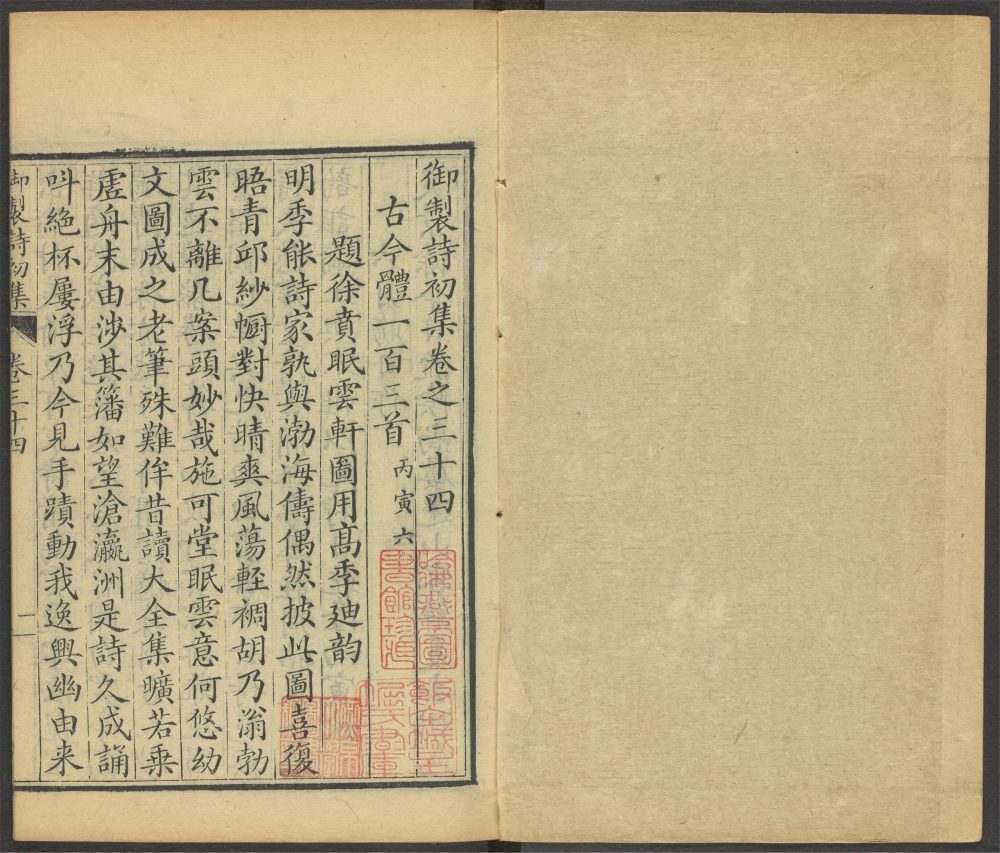 御製詩初集卷之三十四
古今體一百三首 丙寅六
題徐賁眠雲軒圖用高季廸韵
明季能詩家孰與渤海儔偶然披此圖喜復
晤青邱紗㡡對快晴爽風蕩輕裯胡乃滃勃
雲不離几案頭妙哉施可堂眠雲意何悠幼
文圖成之老筆殊難侔昔讀大全集曠若乗
虛舟末由涉其籓如望滄瀛洲是詩久成誦
叫絶杯屢浮乃今見手蹟動我逸興幽由来
御製詩初集 卷三十四 一
燕京大學圖書館珍藏